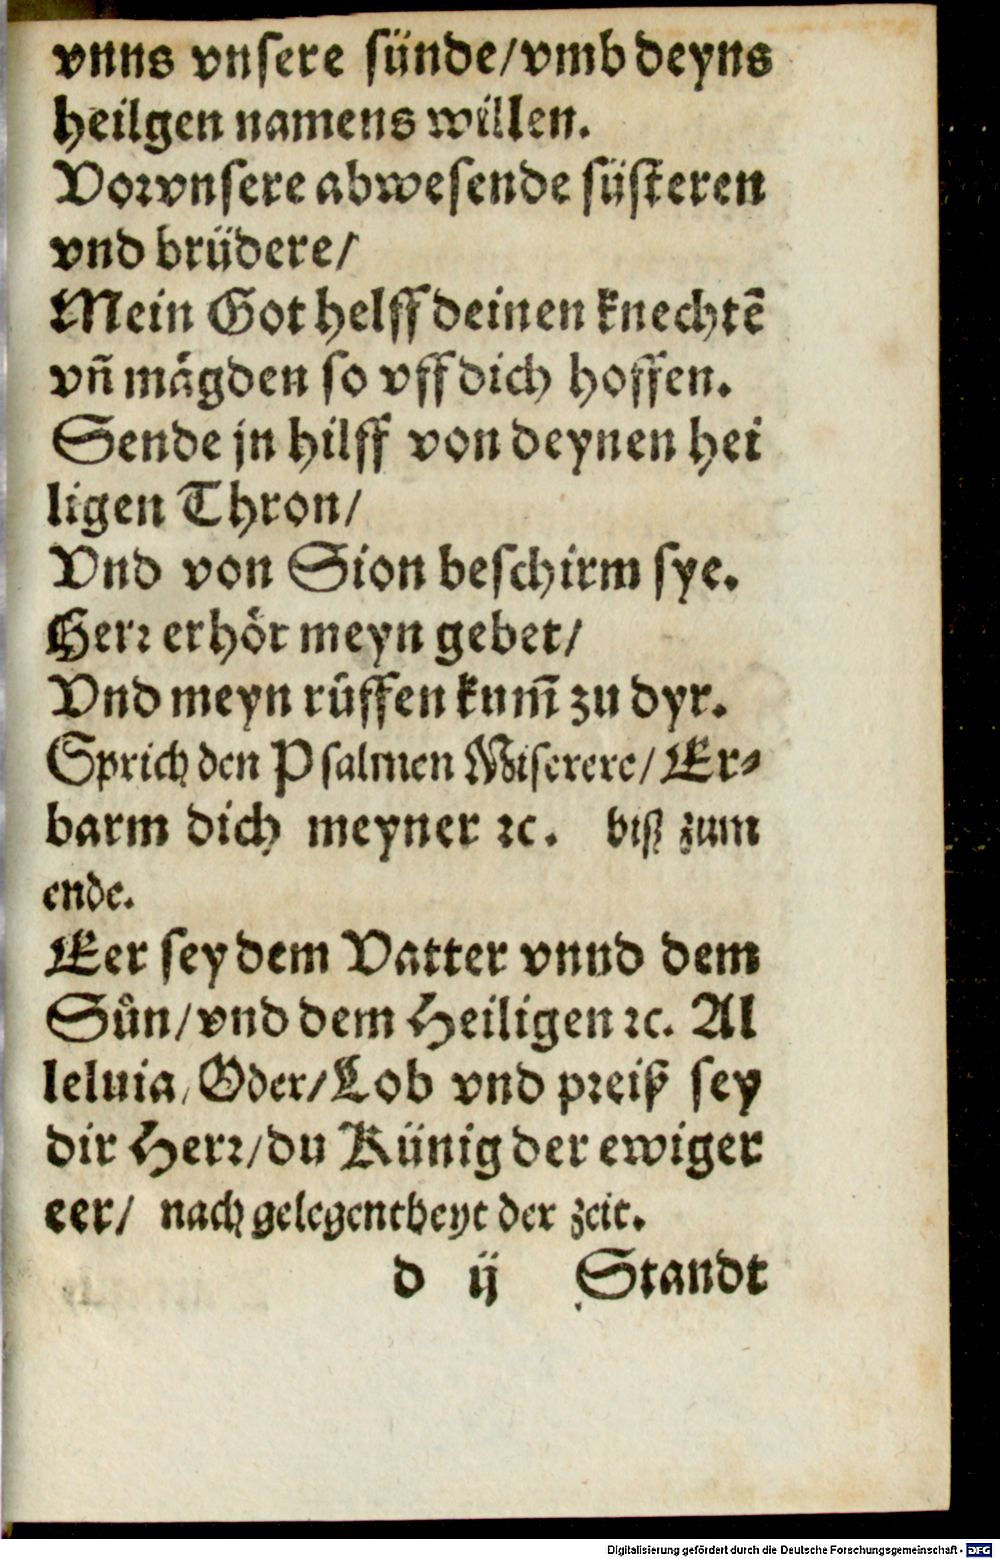 vnns vnsere sünde/vmb deyns
heilgen namens willen.
Vor vnsere abwesende süsteren
vnd brüdere/
Mein Got helff deinen knechtẽ
vñ mägden so vff dich hoffen.
Sende jn hilff von deynen hei
ligen Thron/
Vnd von Sion beschirm sye.
Herr erhör meyn gebet/
Vnd meyn růffen kum̃ zu dyr.
Sprich den Psalmen Miserere/Er⸗
barm dich meyner ⁊c. biß zum
ende.
Eer sey dem Vatter vnnd dem
Sůn/vnd dem Heiligen ⁊c. Al
leluia/Oder/Lob vnd preiß sey
dir Herr/du Künig der ewiger
eer/ nach gelegentheyt der zeit.
d ij Standt
Digitalisierung gefördert durch die Deutsche Forschungsgemeinschaft - DFG